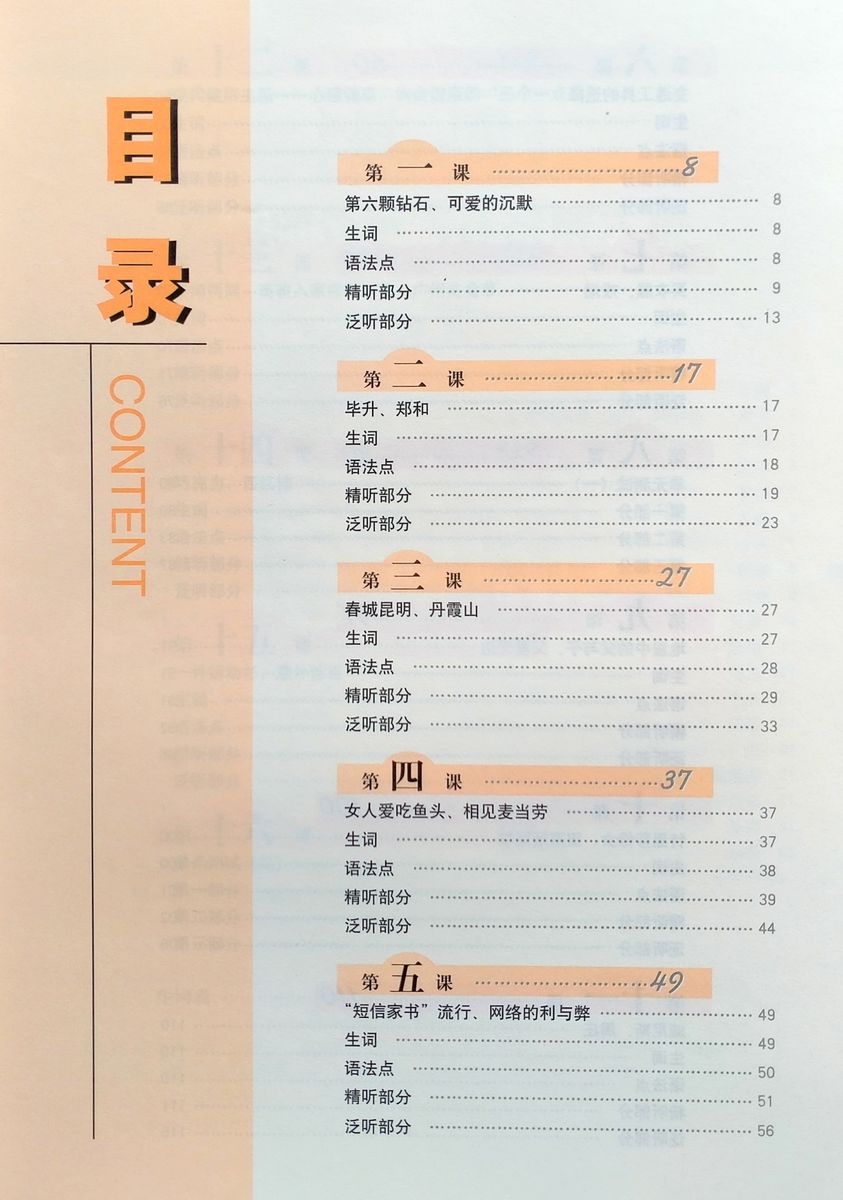 目录
CONTENT
第一课 ……………………………8
第六颗钻石、可爱的沉默 ……………………………8
生词 ……………………………8
语法点 ……………………………8
精听部分 ……………………………9
泛听部分 ……………………………13
第二课 ……………………………17
毕升、郑和 ……………………………17
生词 ……………………………17
语法点 ……………………………18
精听部分 ……………………………19
泛听部分 ……………………………23
第三课 ……………………………27
春城昆明、丹霞山 ……………………………27
生词 ……………………………27
语法点 ……………………………28
精听部分 ……………………………29
泛听部分 ……………………………33
第四课 ……………………………37
女人爱吃鱼头、相见麦当劳 ……………………………37
生词 ……………………………37
语法点 ……………………………38
精听部分 ……………………………39
泛听部分 ……………………………44
第五课 ……………………………49
“短信家书”流行、网络的利与弊 ……………………………49
生词 ……………………………49
语法点 ……………………………50
精听部分 ……………………………51
泛听部分 ……………………………56